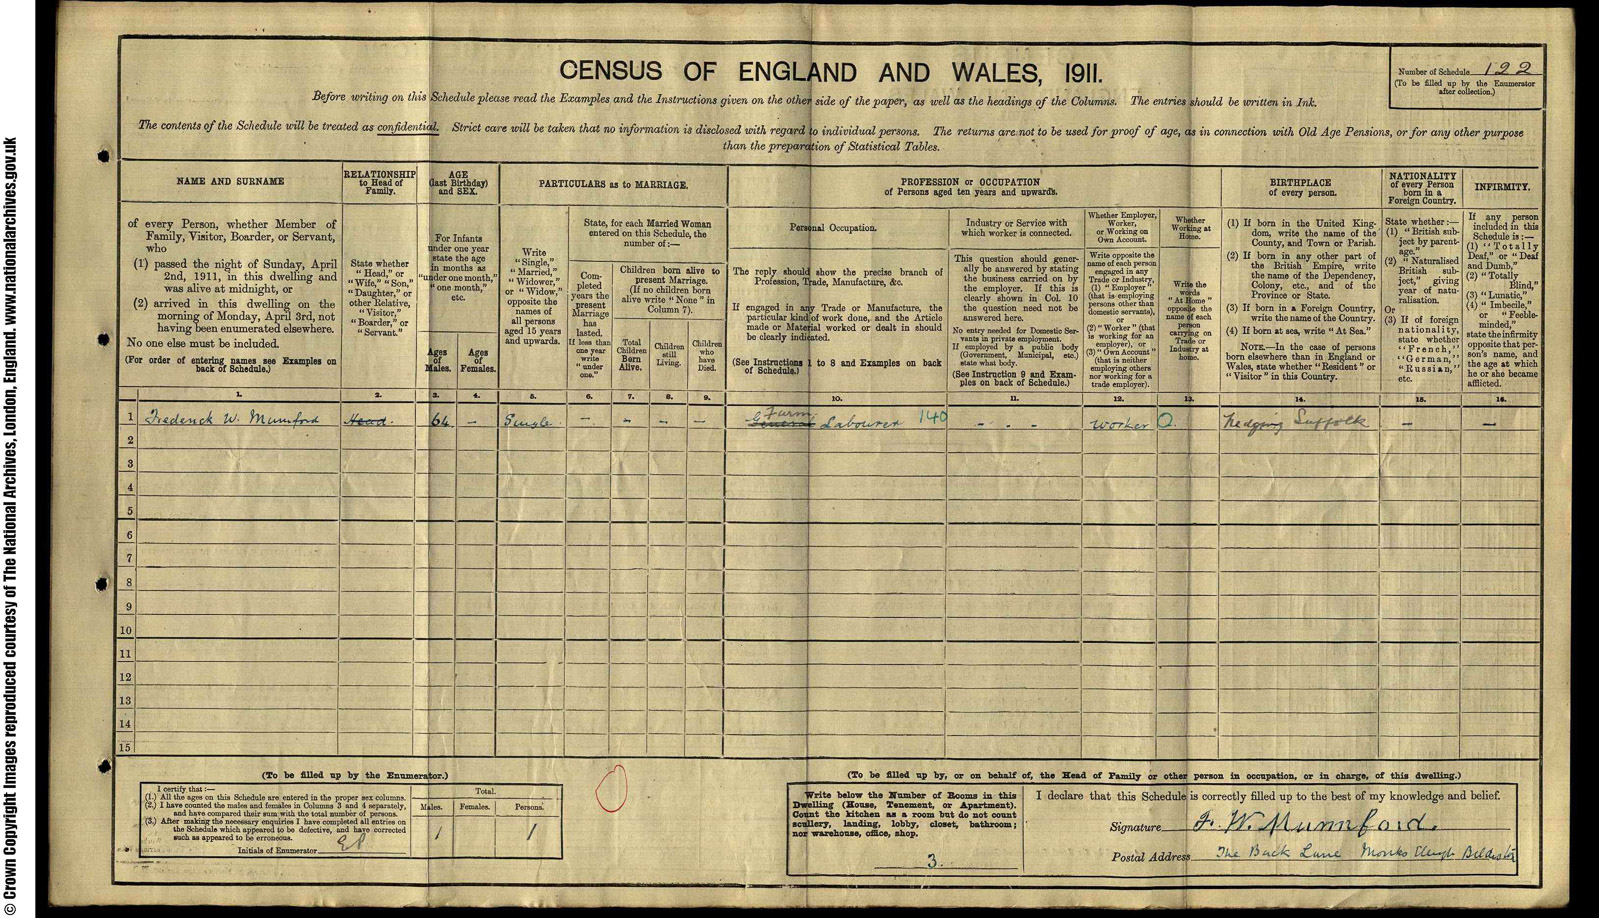 © Crown Copyright Images reproduced courtesy of The National Archives, London, England. www.nationalarchives.gov.uk
CENSUS OF ENGLAND AND WALES, 1911.
Number of Schedule 122
(To be filled up by the Enumerator
after collection.)
Before writing on this Schedule please read the Examples and the Instructions given on the other side of the paper, as well as the headings of the Columns. The entries should be written in Ink.
The contents of the Schedule will be treated as confidential. Strict care will be taken that no information is disclosed with regard to individual persons. The returns are not to be used for proof of age, as in connection with Old Age Pensions, or for any other purpose
than the preparation of Statistical Tables.
NAME AND SURNAME
of every Person, whether Member of
Family, Visitor, Boarder, or Servant,
who
(1) passed the night of Sunday, April
2nd, 1911, in this dwelling and
was alive at midnight, or
(2) arrived in this dwelling on the
morning of Monday, April 3rd, not
having been enumerated elsewhere.
No one else must be included.
(For order of entering names see Examples on
back of Schedule.)
RELATIONSHIP
to Head of
Family.
State whether
"Head," or
"Wife," "Son,"
"Daughter," or
other Relative,
"Visitor,"
"Boarder," or
"Servant."
AGE
(last Birthday)
and SEX.
For Infants
under one year
state the age
in months as
"under one month,"
"one month,"
etc.
Ages
of
Males.
Ages
of
Females.
PARTICULARS as to MARRIAGE.
Write
"Single,"
"Married,"
"Widower,"
or "Widow,"
opposite the
names of
all persons
aged 15 years
and upwards.
State, for each Married Woman
entered on this Schedule, the
number of:—
Com-
pleted
years the
present
Marriage
has
lasted.
If less than
one year
write
"under
one."
Children born alive to
present Marriage.
(If no children born
alive write "None" in
Column 7).
Total
Children
Born
Alive.
Children
still
Living.
Children
who
have
Died.
PROFESSION or OCCUPATION
of Persons aged ten years and upwards.
Personal Occupation.
The reply should show the precise branch of
Profession, Trade, Manufacture, &c.
If engaged in any Trade or Manufacture, the
particular kind of work done, and the Article
made or Material worked or dealt in should
be clearly indicated.
(See Instructions 1 to 8 and Examples on back
of Schedule.)
Industry or Service with
which worker is connected.
This question should gener-
ally be answered by stating
the business carried on by
the employer. If this is
clearly shown in Col. 10
the question need not be
answered here.
No entry needed for Domestic Ser-
vants in private employment.
If employed by a public body
(Government, Municipal, etc.)
state what body.
(See Instruction 9 and Exam-
ples on back of Schedule.)
Whether Employer,
Worker,
or Working on
Own Account.
Write opposite the
name of each person
engaged in any
Trade or Industry,
(1) "Employer"
(that is employing
persons other than
domestic servants),
or
(2) "Worker" (that
is working for an
employer), or
(3) "Own Account"
(that is neither
employing others
nor working for a
trade employer).
Whether
Working at
Home.
Write the
words
"At Home"
opposite the
name of each
person
carrying on
Trade or
Industry at
home.
BIRTHPLACE
of every person.
(1) If born in the United King-
dom, write the name of the
County, and Town or Parish.
(2) If born in any other part of
the British Empire, write
the name of the Dependency,
Colony, etc., and of the
Province or State.
(3) If born in a Foreign Country,
write the name of the Country.
(4) If born at sea, write "At Sea."
NOTE.—In the case of persons
born elsewhere than in England or
Wales, state whether "Resident" or
"Visitor" in this Country.
NATIONALITY
of every Person
born in a
Foreign Country.
State whether:—
(1) "British sub-
ject by parent-
age."
(2) "Naturalised
British sub-
ject," giving
year of natu-
ralisation.
Or
(3) If of foreign
nationality,
state whether
"French,"
"German,"
"Russian,"
etc.
INFIRMITY.
If any person
included in this
Schedule is:—
(1) "Totally
Deaf," or "Deaf
and Dumb,"
(2) "Totally
Blind,"
(3) "Lunatic,"
(4) "Imbecile,"
or "Feeble-
minded,"
state the infirmity
opposite that per-
son's name, and
the age at which
he or she became
afflicted.
1. 2. 3. 4. 5. 6. 7. 8. 9. 10. 11. 12. 13. 14. 15. 16.
1 Frederick W. Mumford Head. 64 - Single - - - - General Farm Labourer 140 - - - Worker O. Hedging Suffolk - -
2
3
4
5
6
7
8
9
10
11
12
13
14
15
(To be filled up by the Enumerator.)
I certify that:—
(1.) All the ages on this Schedule are entered in the proper sex columns.
(2.) I have counted the males and females in Columns 3 and 4 separately,
and have compared their sum with the total number of persons.
(3.) After making the necessary enquiries I have completed all entries on
the Schedule which appeared to be defective, and have corrected
such as appeared to be erroneous.
Initials of Enumerator
Total.
Males. Females. Persons.
1 1
(To be filled up by, or on behalf of, the Head of Family or other person in occupation, or in charge, of this dwelling.)
Write below the Number of Rooms in this
Dwelling (House, Tenement, or Apartment).
Count the kitchen as a room but do not count
scullery, landing, lobby, closet, bathroom;
nor warehouse, office, shop.
3.
I declare that this Schedule is correctly filled up to the best of my knowledge and belief.
Signature F. W. Mumford.
Postal Address The Back Lane Monks Eleigh Bildeston